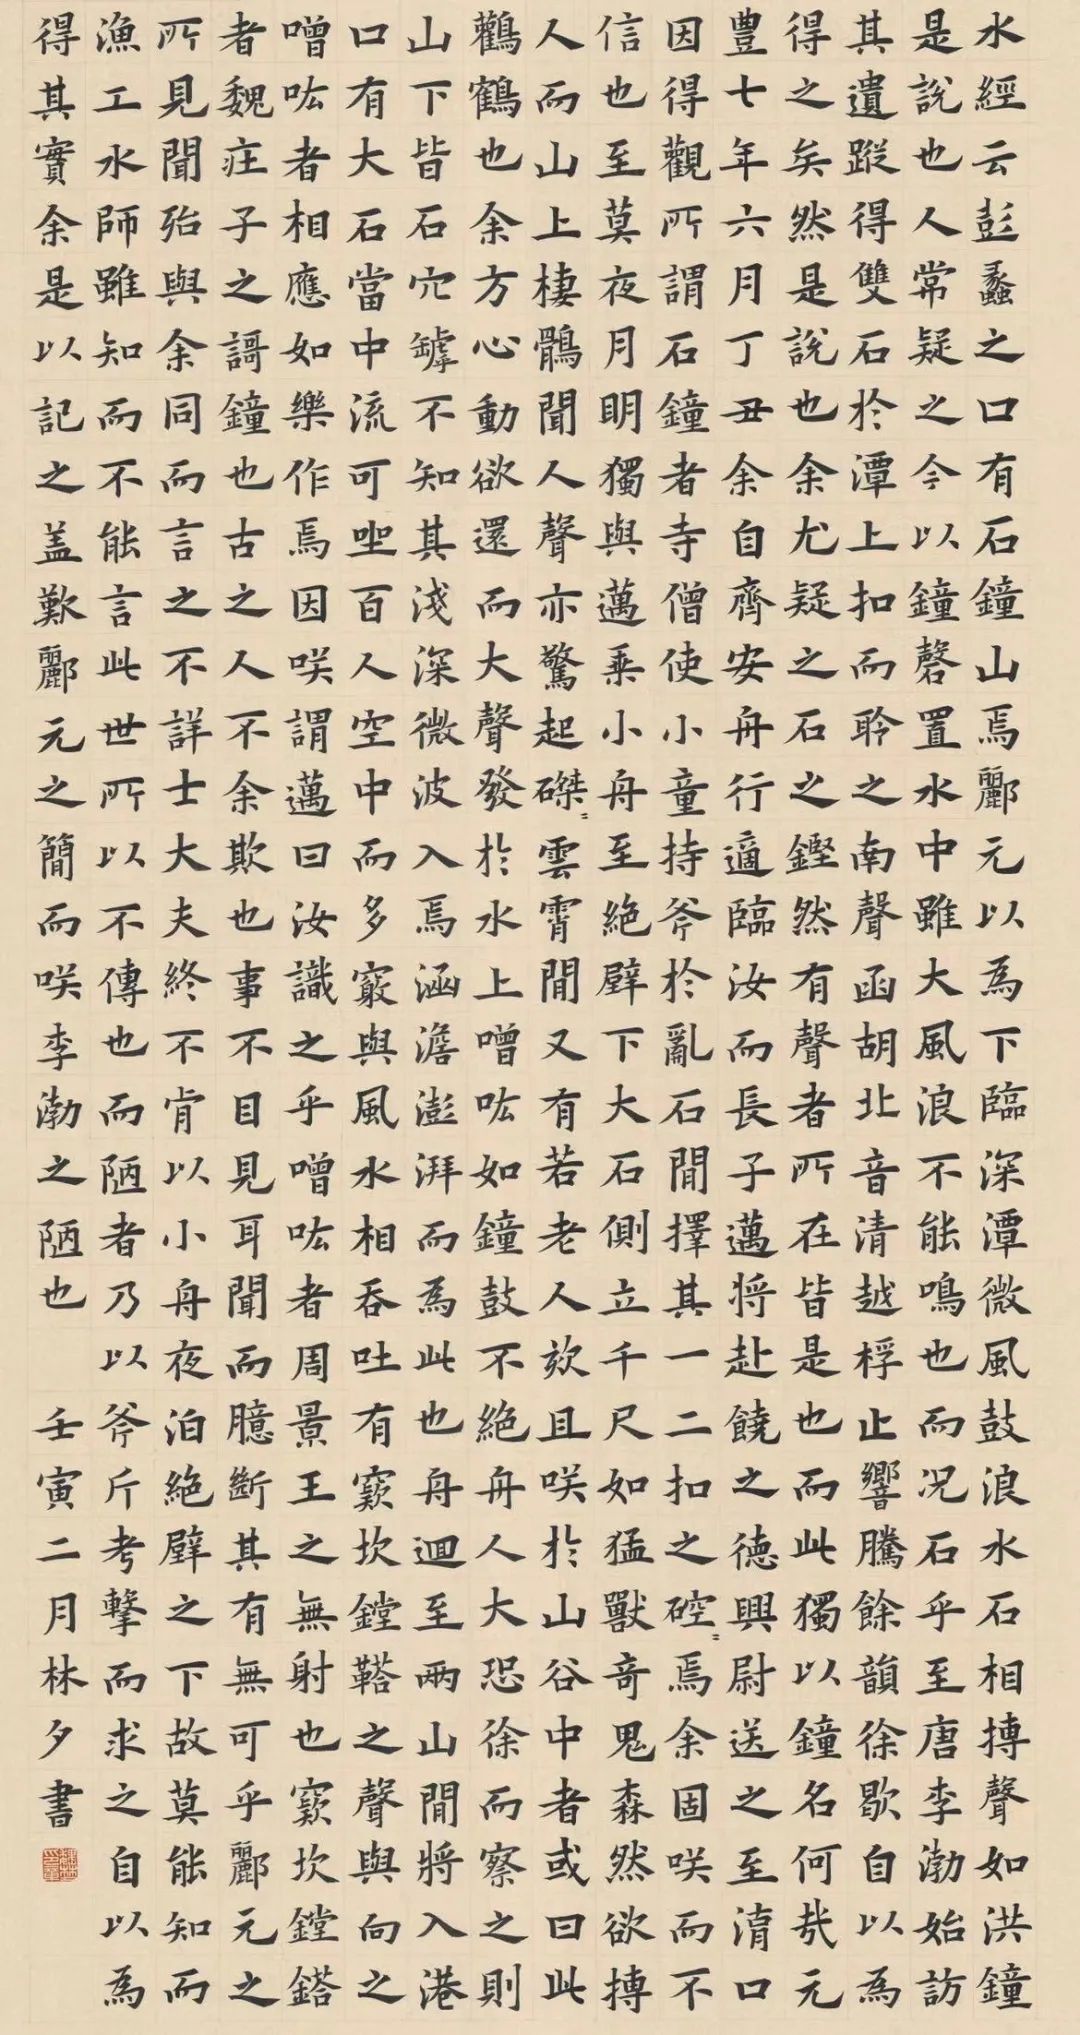 水經云彭蠡之口有石鐘山焉酈元以為下臨深潭微風鼓浪水石相搏聲如洪鐘
是說也人常疑之今以鐘磬置水中雖大風浪不能鳴也而況石乎至唐李渤始訪
其遺蹤得雙石於潭上扣而聆之南聲函胡北音清越桴止響騰餘韻徐歇自以為
得之矣然是說也余尤疑之石之鏗然有聲者所在皆是也而此獨以鐘名何哉元
豊七年六月丁丑余自齊安舟行適臨汝而長子邁將赴饒之德興尉送之至湖口
因得觀所謂石鐘者寺僧使小童持斧於亂石間擇其一二扣之硿〻焉余固咲而不
信也至莫夜月明獨與邁乘小舟至絕壁下大石側立千尺如猛獸奇鬼森然欲搏
人而山上棲鶻聞人聲亦驚起磔〻雲霄間又有若老人欬且咲於山谷中者或曰此
鸛鶴也余方心動欲還而大聲發於水上噌吰如鐘鼓不絕舟人大恐徐而察之則
山下皆石穴罅不知其淺深微波入焉涵澹澎湃而為此也舟迴至兩山間將入港
口有大石當中流可坐百人空中而多竅與風水相吞吐有窾坎鏜鞳之聲與向之
噌吰者相應如樂作焉因咲謂邁曰汝識之乎噌吰者周景王之無射也窾坎鏜鎝
者魏莊子之謌鐘也古之人不余欺也事不目見耳聞而臆斷其有無可乎酈元之
所見聞殆與余同而言之不詳士大夫終不肯以小舟夜泊絕壁之下故莫能知而
漁工水師雖知而不能言此世所以不傳也而陋者乃以斧斤考擊而求之自以為
得其實余是以記之蓋歎酈元之簡而咲李渤之陋也 壬寅二月林夕書